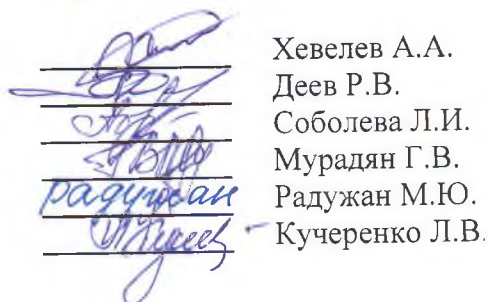 Хевелев А.А.
Деев Р.В.
Соболева Л.И.
Мурадян Г.В.
радужан Радужан М.Ю.
Кучеренко Л.В.